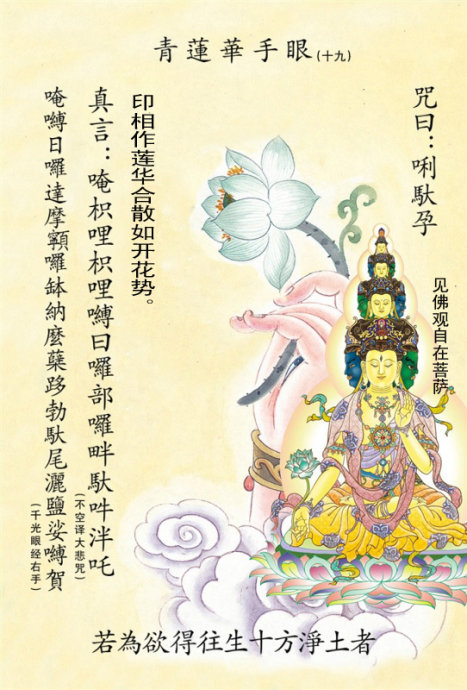 青蓮華手眼(十九)
咒曰：唎馱孕
见佛观自在菩萨
印相作莲华合散如开花势。
真言：唵枳哩枳哩嚩日囉部囉畔馱吽泮吒
(不空译大悲咒)
唵嚩日囉達摩顙囉缽納麼蘖跢勃馱尾灑鹽娑嚩賀
(千光眼经右手)
若為欲得往生十方淨土者